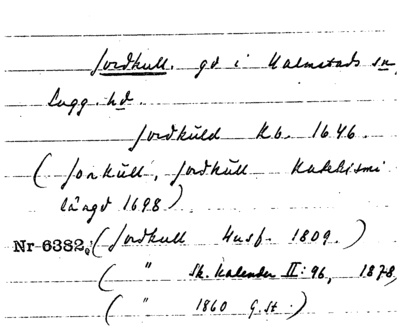 Jordkull. gd i Halmstads sn,
Lugg. hd.
Jordkuld Kb. 1646.
(Jorkull, Jordkull Katekismi
längd 1698)
Nr 6382. (Jordkull Husf. 1809.)
( " Sk. Kalender II: 96, 1878,
( " 1860 G.st.)